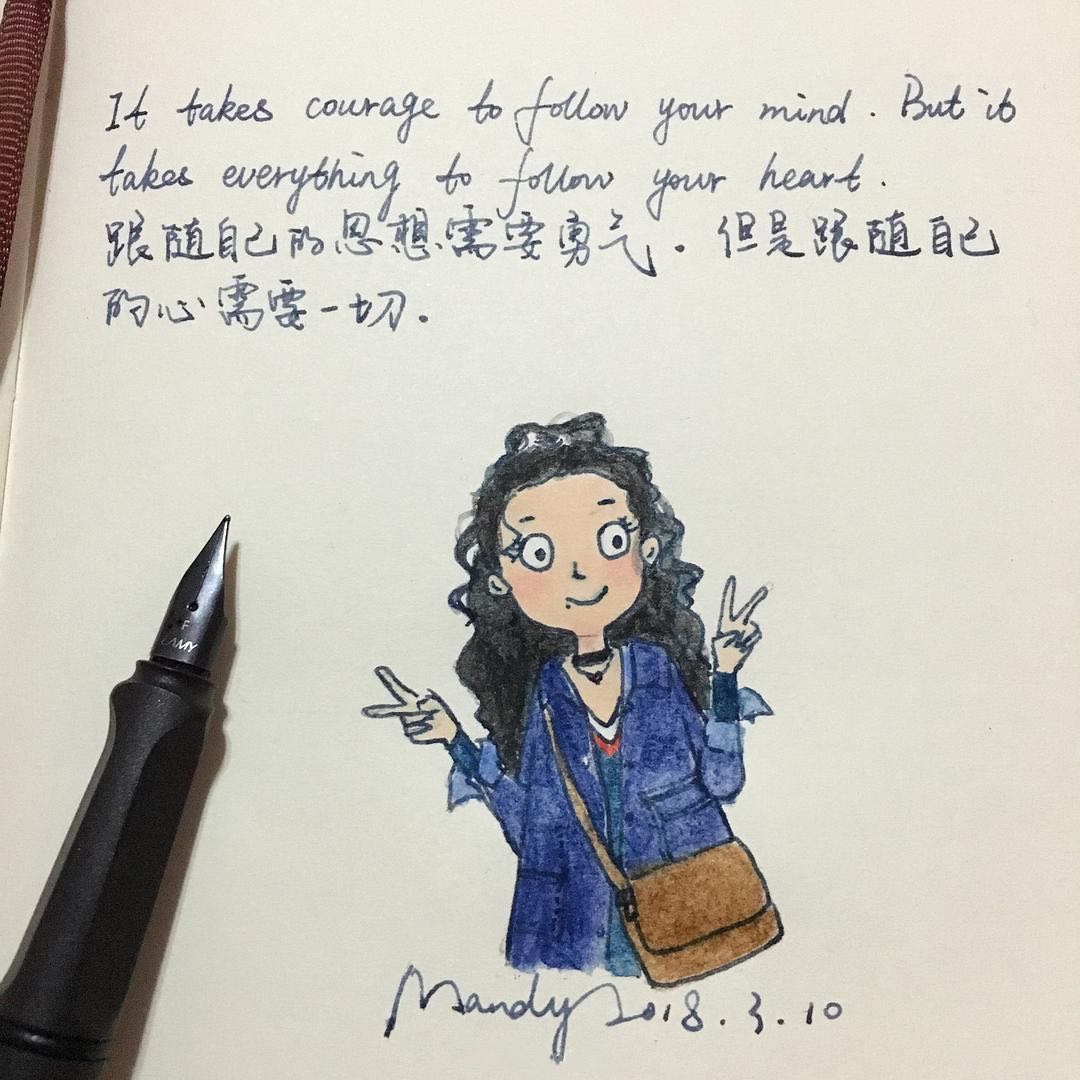 It takes courage to follow your mind. But it
takes everything to follow your heart.
跟随自己的思想需要勇气。但是跟随自己
的心需要一切.
F
LAMY
Mandy 2018.3.10